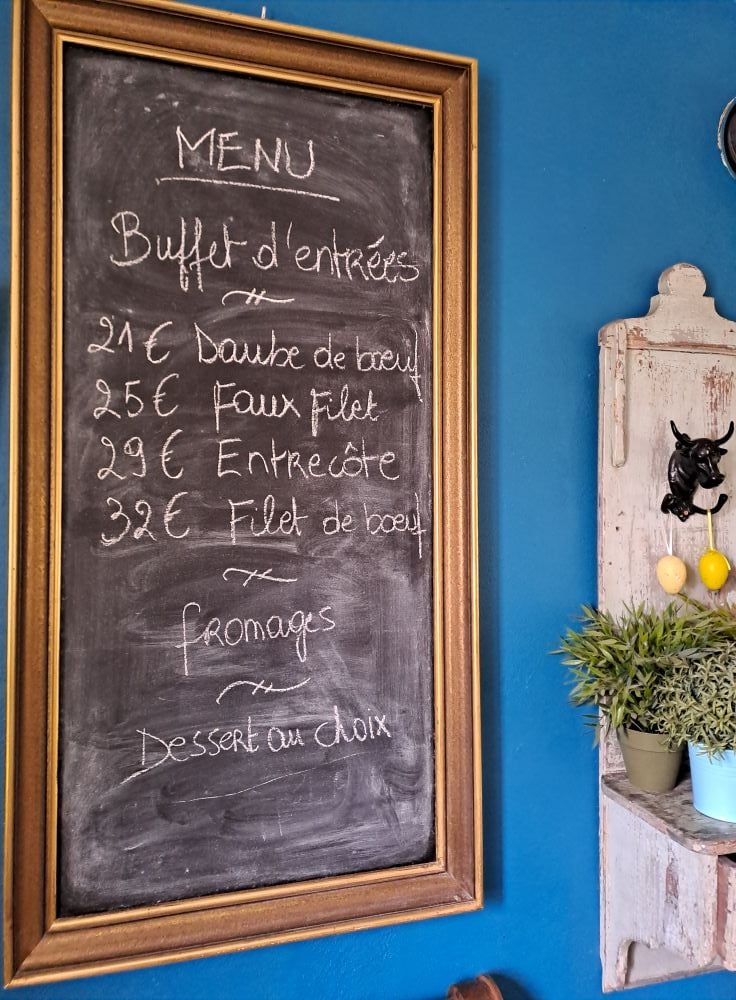 MENU
Buffet d'entrées
21€ Daube de bœuf
25€ Faux Filet
29€ Entrecôte
32€ Filet de bœuf
fromages
Dessert au choix